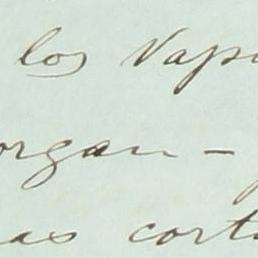 los Vapo
organ —
as cort